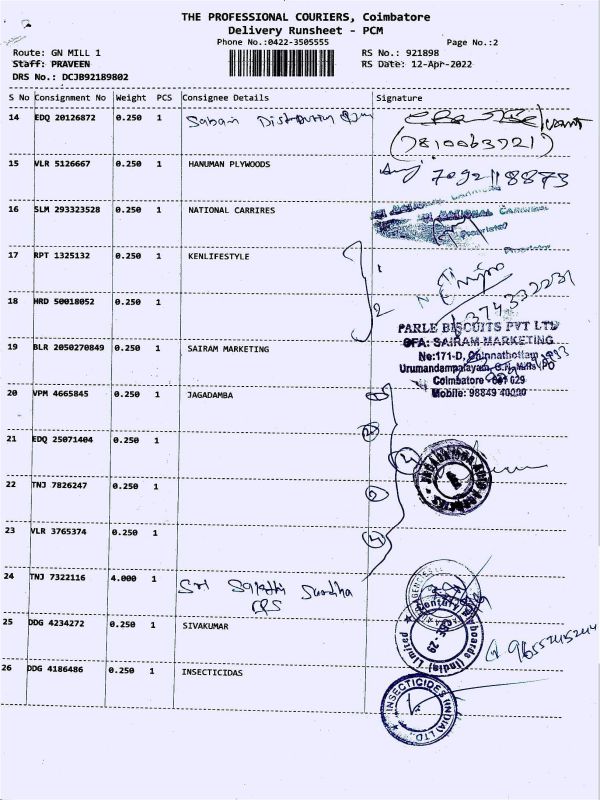 THE PROFESSIONAL COURIERS, Coimbatore
Delivery Runsheet - PCM
Phone No.:0422-3505555
Page No.:2
Route: GN MILL 1
RS No.: 921898
Staff: PRAVEEN
RS Date: 12-Apr-2022
DRS No.: DCJB92189802
S No Consignment No Weight PCS Consignee Details Signature
14 EDQ 20126872 0.250 1
(7810063721)
15 VLR 5126667 0.250 1 HANUMAN PLYWOODS
7092118873
16 SLM 293323528 0.250 1 NATIONAL CARRIRES
NATIONAL CARRIERS
Proprietor
17 RPT 1325132 0.250 1 KENLIFESTYLE
1
18 HRD 50018052 0.250 1
2
PARLE BISCUITS PVT LTD
CFA: SAIRAM MARKETING
19 BLR 2050270849 0.250 1 SAIRAM MARKETING
No:171-D, Chinnathottam
Urumandampalayam, G.N. Mills PO
Coimbatore - 641 029
Mobile: 98849 40000
20 VPM 4665845 0.250 1 JAGADAMBA
21 EDQ 25071404 0.250 1
22 TNJ 7826247 0.250 1
23 VLR 3765374 0.250 1
24 TNJ 7322116 4.000 1
Sri
25 DDG 4234272 0.250 1 SIVAKUMAR
26 DDG 4186486 0.250 1 INSECTICIDAS
INSECTICIDES (INDIA) LTD.